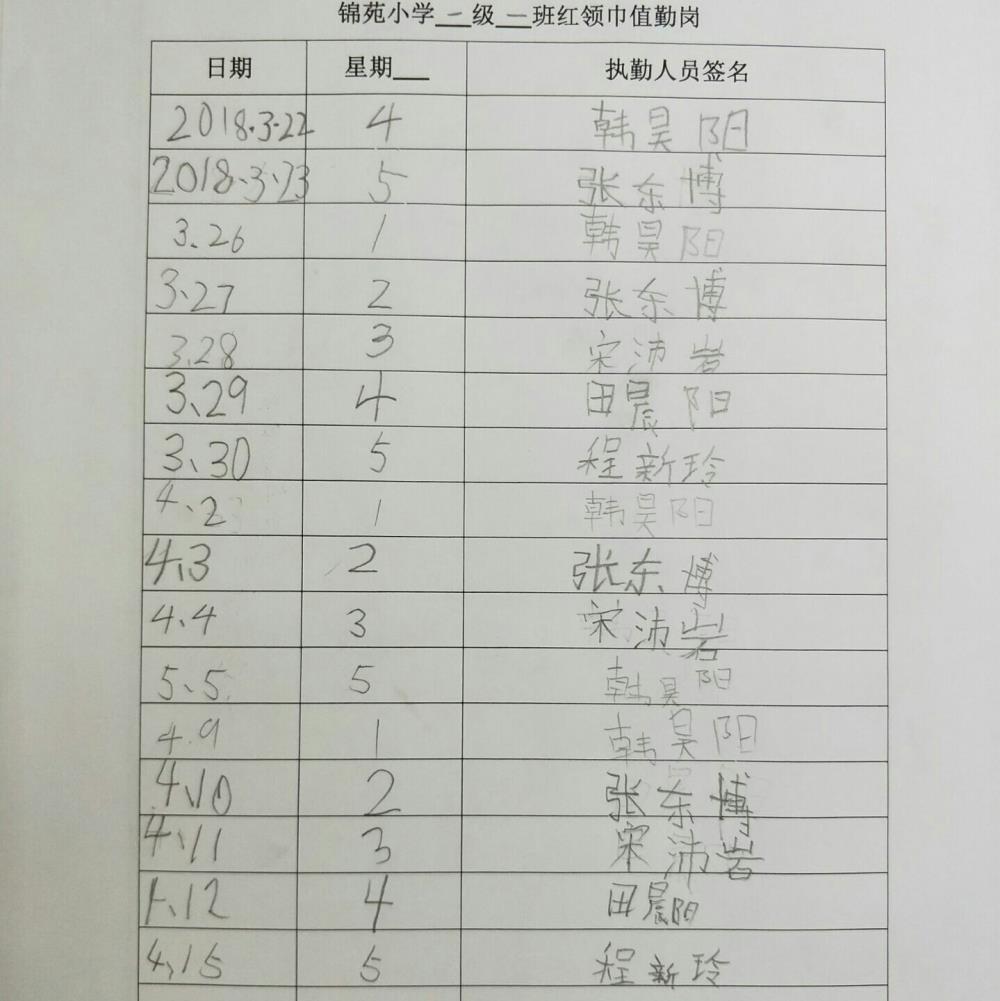 锦苑小学一级一班红领巾值勤岗
日期 星期 执勤人员签名
2018.3.22 4 韩昊阳
2018、3、23 5 张东博
3.26 1 韩昊阳
3、27 2 张东博
3.28 3 宋沛岩
3、29 4 田晨阳
3、30 5 程新玲
4、2 1 韩昊阳
4、3 2 张东博
4.4 3 宋沛岩
5、5 5 韩昊阳
4.9 1 韩昊阳
4、10 2 张东博
4、11 3 宋沛岩
1、12 4 田晨阳
4、15 5 程新玲